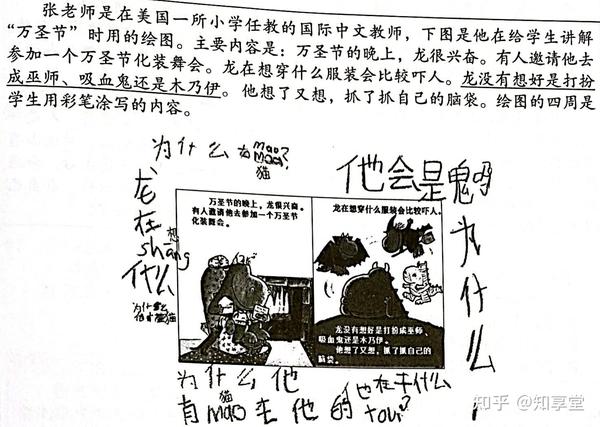 张老师是在美国一所小学任教的国际中文教师，下图是他在给学生讲解
“万圣节”时用的绘图。主要内容是：万圣节的晚上，龙很兴奋。有人邀请他去
参加一个万圣节化装舞会。龙在想穿什么服装会比较吓人。龙没有想好是打扮
成巫师、吸血鬼还是木乃伊。他想了又想，抓了抓自己的脑袋。绘图的四周是
学生用彩笔涂写的内容。
为什么有mao?
猫
他会是鬼吗
龙
在
想
shang
什么
万圣节的晚上，龙很兴奋。
有人邀请他去参加一个万圣节
化装舞会。
龙在想穿什么服装会比较吓人。
龙没有想好是打扮成巫师、
吸血鬼还是木乃伊。
他想了又想，抓了抓自己的
脑袋。
为什么
为什么他
有猫mao在他的
tou?
知乎 @知享堂